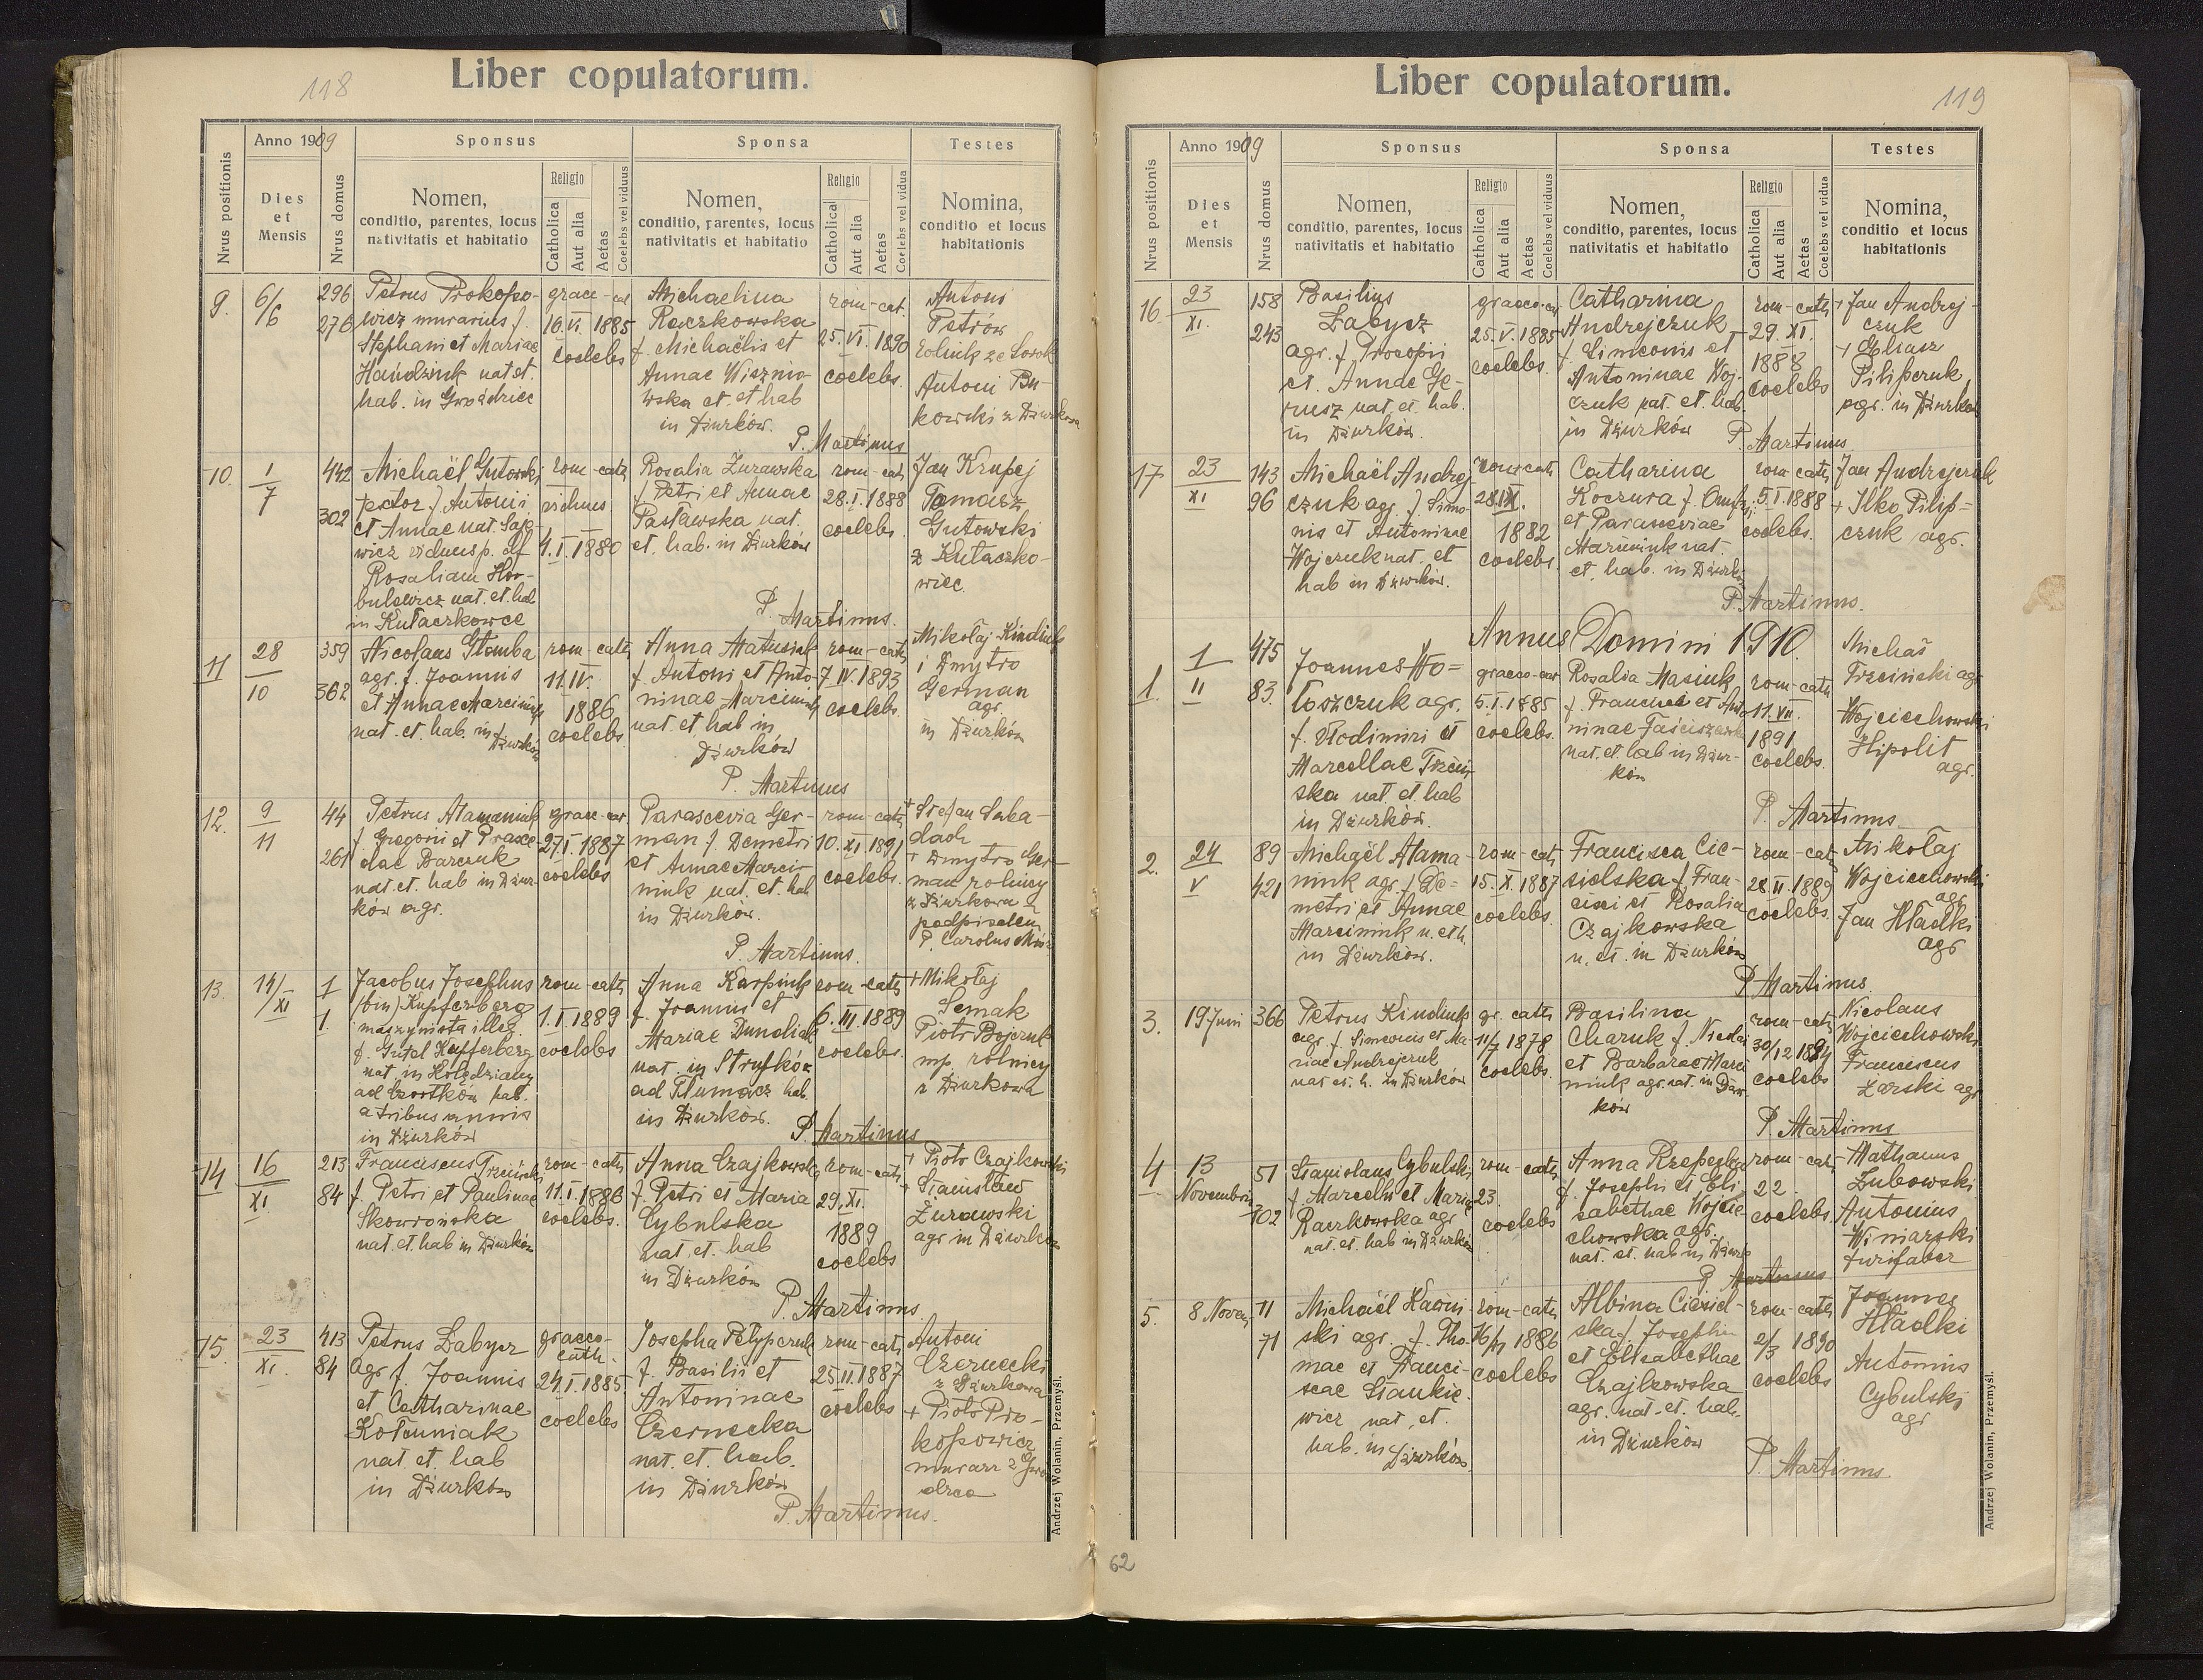 118
Liber copulatorum.
Nrus positionis
Anno 1909
Dies
et
Mensis
Nrus domus
Sponsus
Nomen,
conditio, parentes, locus
nativitatis et habitatio
Religio
Catholica
Aut alia
Aetas
Coelebs vel viduus
Sponsa
Nomen,
conditio, parentes, locus
nativitatis et habitatio
Religio
Catholica
Aut alia
Aetas
Coelebs vel vidua
Testes
Nomina,
conditio et locus
habitationis
9.
6/6
296
276
Petrus Prokopo-
wicz murarius f.
Stephani et Mariae
nat et.
hab. in
16.VI. 1885
coelebs
Michaelina
Raczkowska
f. Michaëlis et
Annae Wisznio-
wska et. et hab
in Dżurków.
rom-cat.
25.VI. 1890
coelebs.
Antoni
Petrów
Antoni Bu-
kowski z Dżurkowa
P. Martinus
10.
1
7
442
302
Michaël Gutowski
f. Antonii
et Annae nat.
wicz viduus p. def
Rosaliam Hor-
bulewicz nat. et hab
in Kułaczkowce
rom-cath
viduus
4.I.1880
Rosalia Żurawska
f. Petri et Annae
Pasławska nat.
et. hab. in Dżurków
rom-cath
28.I.1888
coelebs.
Jan Krupej
Tomasz
Gutowski
z Kułaczko-
wiec.
P. Martinus.
11
28
10
359
362
Nicolaus
agr. f. Joannis
et Annae Marciniuk
nat. et. hab. in Dżurków
rom-cath
11.IV.
1886
coelebs.
Anna Matusiak
f. Antoni et Anto-
ninae Marciniuk
nat. et. hab in
Dżurków
rom-cath
7.IV.1893
coelebs.
Mikołaj Kindiuk
i Dmytro
German
agr.
in Dżurków
P. Martinus
12.
9
11
44
261
Petrus Atamaniuk
f. Gregorii et Praxe-
dae Barczuk
nat. et. hab in Dżur-
ków agr.
27.I.1887
coelebs
Parascevia Ger-
man f. Demetri
et Annae Marci-
niuk nat. et. hab
in Dżurków.
rom-cath
10.XI.1891
coelebs.
+ Stefan Saba-
dach
+ Dmytro Ger-
man rolnicy
z Dżurkowa
podpisałem
P. Carolus
P. Martinus.
13.
14/XI
1
1.
Jacobus Josephus
(bin) Kupferberg
maszynista illeg.
f. Gutel Kupferberg
nat. in
ad Czortków hab.
a tribus annis
in Dżurków
rom-cath
1.I.1889
coelebs
Anna Karpiuk
f. Joannis et
Mariae
nat. in
ad Tłumacz hab.
in Dżurków.
rom-cath
6.III.1889
coelebs.
+ Mikołaj
Semak
Piotr Bojczuk
mp. rolnicy
z Dżurkowa
P. Martinus
14
16
XI.
213
84
Franciscus Trzciński
f. Petri et Paulinae
Skowrońska
nat. et. hab in Dżurków
rom-cath
11.I.1886
coelebs.
Anna Czajkowska
f. Petri et Maria
Cybulska
nat. et. hab
in Dżurków
rom-cath
29.XI.
1889
coelebs
+ Piotr Czajkowski
+ Stanisław
Żurawski
agr in Dżurków
P. Martinus
15.
23
XI.
413
84
Petrus Łabycz
agr f. Joannis
et Catharinae
Kołtuniak
nat. et. hab
in Dżurków
graeco-
cath.
24.I.1885.
coelebs
Josepha Pełypczuk
f. Basilii et
Antoninae
Czernecka
nat. et. hab.
in Dżurków
rom-cath
25.II.1887
coelebs
Antoni
Czernecki
z Dżurkowa
+ Piotr Pro-
kopowicz
P. Martinus.
Andrzej Wolanin, Przemyśl.
119
Liber copulatorum.
Nrus positionis
Anno 1909
Dies
et
Mensis
Nrus domus
Sponsus
Nomen,
conditio, parentes, locus
nativitatis et habitatio
Religio
Catholica
Aut alia
Aetas
Coelebs vel viduus
Sponsa
Nomen,
conditio, parentes, locus
nativitatis et habitatio
Religio
Catholica
Aut alia
Aetas
Coelebs vel vidua
Testes
Nomina,
conditio et locus
habitationis
16
23
XI.
158
243
Basilius
Łabycz
agr. f. Procopii
et. Annae Ge-
rusz nat. et. hab.
in Dżurków.
25.V.1885
coelebs.
Catharina
Andrejczuk
f. Simeonis et
Antoninae Woj-
czuk nat. et. hab.
in Dżurków
rom-cath
29.XI.
1888
coelebs
+ Jan Andrej-
czuk
+ Eliasz
Pilipczuk
agr. in Dżurków
P. Martinus
17
23
XI
143
96
Michaël Andrej-
czuk agr. f. Simo-
nis et Antoninae
Wojczuk nat. et
hab in Dżurków.
rom cath
28.IX.
1882
coelebs.
Catharina
Koczura f.
et Parasceviae
nat.
et. hab. in Dżurków
rom cath
5.I.1888
coelebs.
Jan Andrejczuk
+ Ilko Pilip=
czuk agr.
P. Martinus.
Annus Domini 1910.
1.
1
II
475
83.
Joannes Wo=
łoszczuk agr.
f. Włodimiri et
Marcellae Trzciń-
ska nat. et. hab
in Dżurków.
5.I.1885
coelebs.
Rosalia Masiuk
f. et Anto
ninae
nat. et. hab in Dżur-
ków
rom-cath
11.VII.
1891
coelebs.
Michał
Trzciński agr
Wojciechowski
Hipolit
agr.
P. Martinus
2.
24
V
89
421
Michaël Atama-
niuk agr. f. De=
metri et Annae
Marciniuk n. et h.
in Dżurków.
rom-cath
15.X.1887
coelebs.
Francisca Cie-
sielska f. Fran-
cisci et Rosalia
Czajkowska
n. et. in Dżurków
rom-cath
28.II.1889
coelebs.
Mikołaj
Wojciechowski
agr
Jan Hładki
agr
P. Martinus.
3.
19 Juni
366
Petrus Kindiuk
agr. f. Simeonis et Ma-
riae Andrejczuk
nat et. h. in Dżurków
gr. cath
11/7 1878
coelebs.
Basilina
Charuk f.
et Barbarae Marci-
niuk agr. nat. in Dżur-
ków
rom-cath
30/12 1884
coelebs
Nicolaus
Wojciechowski
Franciscus
Żarski agr
P. Martinus
4
13
Novembris
51
302
Stanislaus Cybulski
f. Marcelli et Maria
Raczkowska agr
nat. et. hab in Dżurków
rom-cath
23.
coelebs
Anna
f. Josephi et Eli-
sabethae Wojcie-
chowska agr.
nat. et. hab in Dżurk
rom-cath
22.
coelebs.
Mathaeus
Łubowski
Antonius
Winiarski
P. Martinus
5.
8 Novem
11
71
Michaël
ski agr. f. Tho-
mae et Franci-
scae Stankie-
wicz nat. et.
hab. in Dżurków
rom-cath
1886
coelebs
Albina Ciesiel-
ska f. Josephi
et Elisabethae
Czajkowska
agr. nat. et. hab.
in Dżurków
rom-cath
2/3 1890
coelebs
Joannes
Hładki
Antonius
Cybulski
agr
P. Martinus.
Andrzej Wolanin, Przemyśl.
62